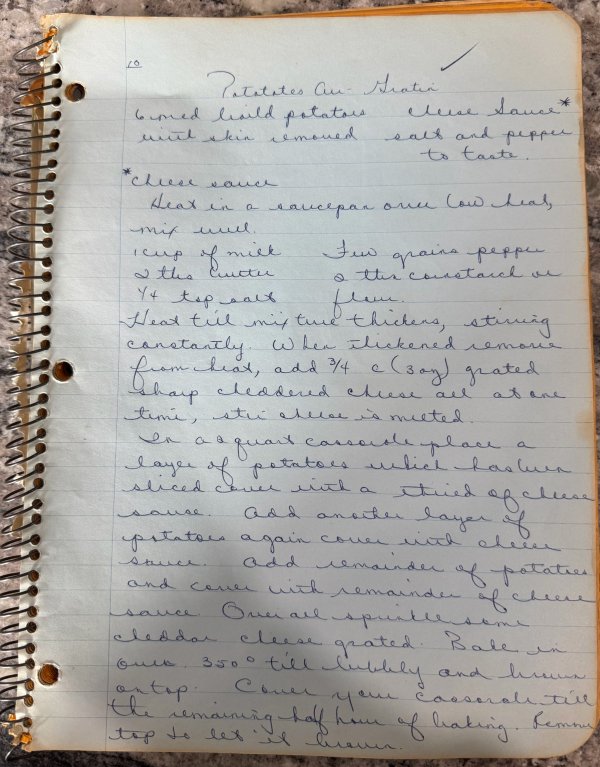 10
Potatotes Au-Gratin
6 med boild potatoes cheese Sauce*
with skin removed salt and pepper
to taste.
*cheese sauce
Heat in a saucepan over low heat,
mix well.
1 cup of milk Few grains pepper
2 tbs butter 2 tbs cornstarch or
1/4 tsp salt flour.
Heat till mixture thickens, stirring
constantly. When thickened remove
from heat, add 3/4 c (3 oz) grated
sharp cheddered cheese all at one
time, stir cheese is melted.
In a quart casserole place a
layer of potatoes which has been
sliced cover with a third of cheese
sauce. Add another layer of
potatoes again cover with cheese
sauce. Add remainder of potatoes
and cover with remainder of cheese
sauce Over all sprinkle some
cheddar cheese grated. Bake in
oven 350° till bubbly and brown
on top. Cover your casserole till
the remaining half hour of baking. Remove
top to let it brown.